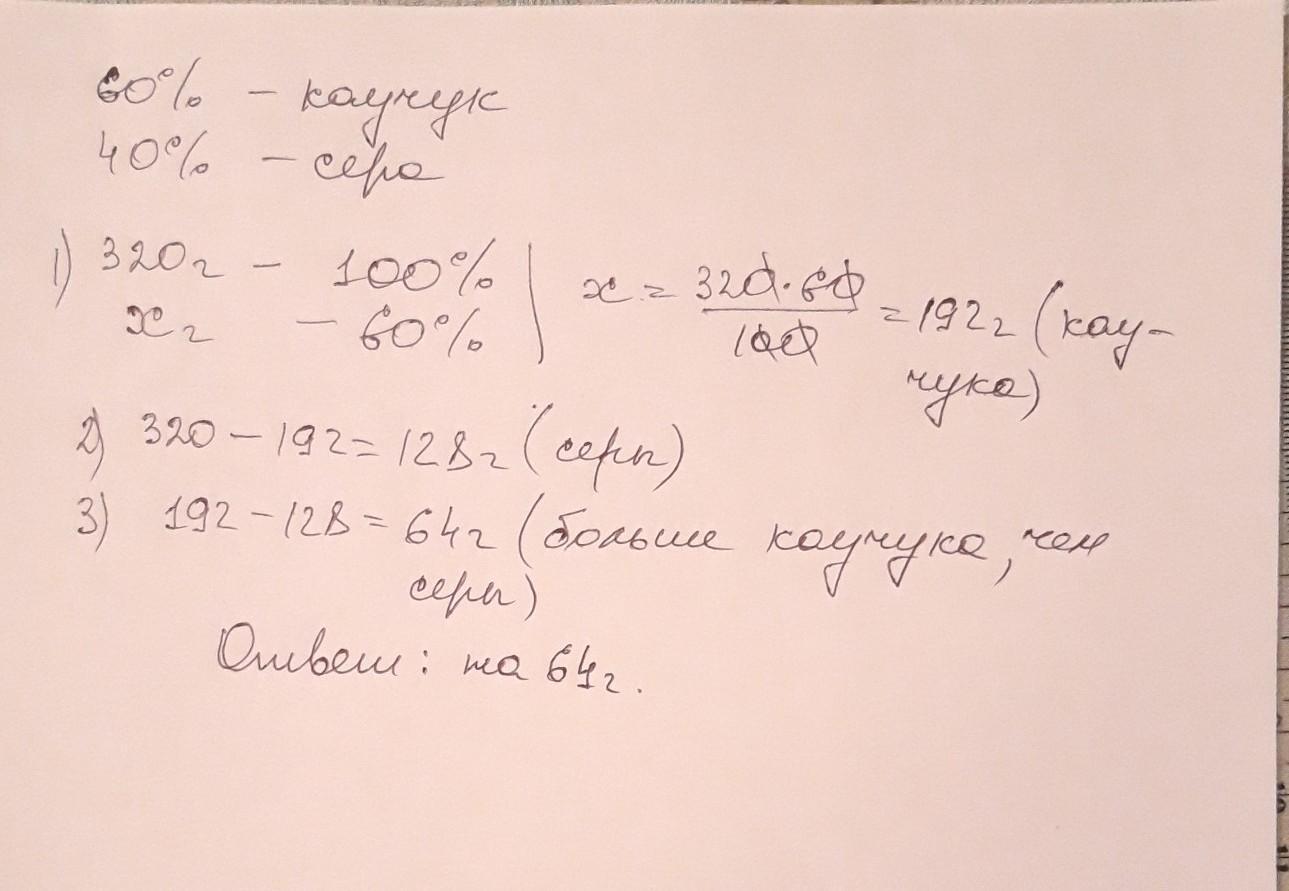 60% – каучук
40% – сера
1) 320г – 100% | x = 320·60/100 = 192г (кау-
xг – 60%
чука)
2) 320 – 192 = 128г (серы)
3) 192 – 128 = 64г (больше каучука, чем
серы)
Ответ: на 64г.